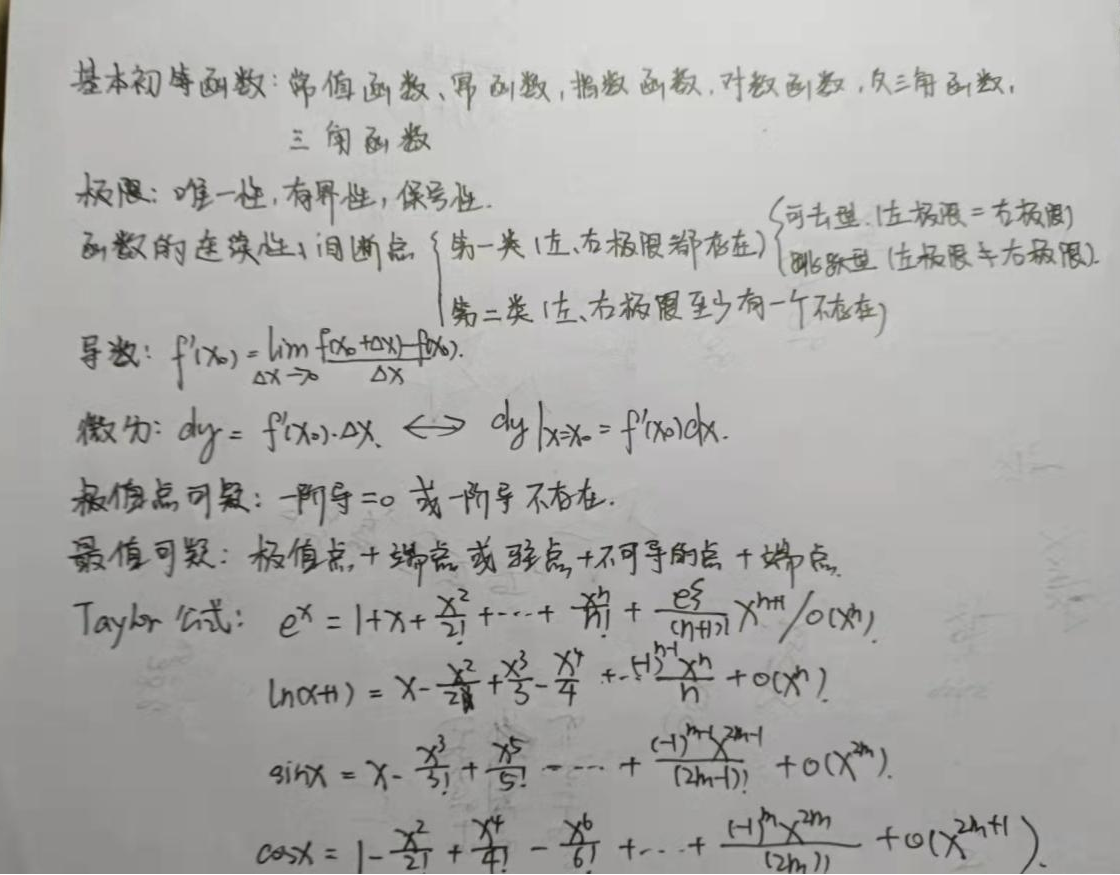 基本初等函数: 常值函数、幂函数, 指数函数, 对数函数, 反三角函数,
三角函数
极限: 唯一性, 有界性, 保号性.
函数的连续性, 间断点 { 第一类 (左、右极限都存在) { 可去型 (左极限 = 右极限)
跳跃型 (左极限 ≠ 右极限).
第二类 (左、右极限至少有一个不存在)
导数: f'(x₀) = lim_{Δx→0} (f(x₀+Δx)-f(x₀))/Δx.
微分: dy = f'(x₀)·Δx. ⟺ dy|x=x₀ = f'(x₀)dx.
极值点可疑: 一阶导=0 或一阶导不存在.
最值可疑: 极值点+端点 或 驻点+不可导的点+端点.
Taylor公式: eˣ = 1+x+x²/2!+⋯+xⁿ/n! + e^ξ/(n+1)! xⁿ⁺¹/o(xⁿ).
ln(x+1) = x - x²/2 + x³/3 - x⁴/4 +⋯(-1)ⁿ⁻¹xⁿ/n + o(xⁿ).
sinx = x - x³/3! + x⁵/5! - ⋯ + (-1)^{m-1}x^{2m-1}/(2m-1)! + o(x^{2m}).
cosx = 1 - x²/2! + x⁴/4! - x⁶/6! +⋯+ (-1)^m x^{2m}/(2m)! + o(x^{2m+1}).